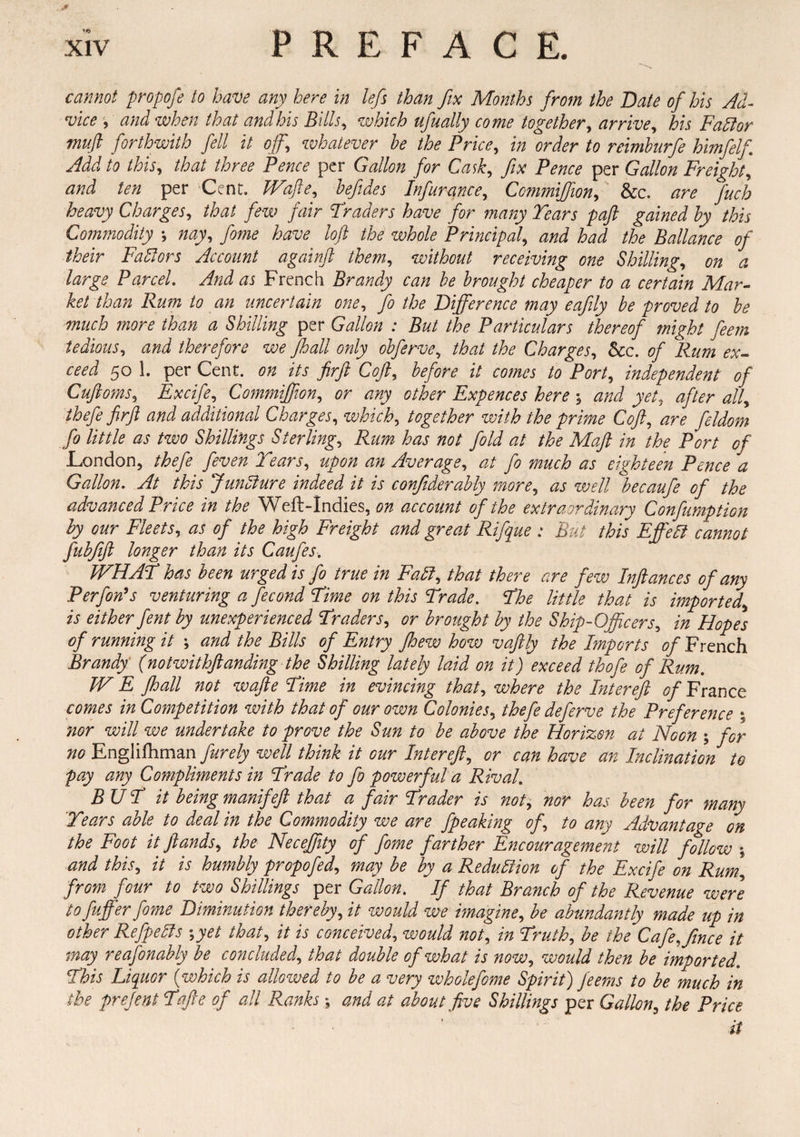 xiv PREFACE.
cannot propoſe to have any here in leſs than ſix Months from the Date of his Ad-
vice, and when that and his Bills, which uſually come together, arrive, his Factor
muſt forthwith ſell it off, whatever be the Price, in order to reimburſe himſelf.
Add to this, that three Pence per Gallon for Cask, ſix Pence per Gallon Freight,
and ten per Cent. Waſte, beſides Inſurance, Commiſſion, &c. are ſuch
heavy Charges, that few fair Traders have for many Years paſt gained by this
Commodity; nay, ſome have loſt the whole Principal, and had the Ballance of
their Factors Account againſt them, without receiving one Shilling, on a
large Parcel. And as French Brandy can be brought cheaper to a certain Mar-
ket than Rum to an uncertain one, ſo the Difference may eaſily be proved to be
much more than a Shilling per Gallon: But the Particulars thereof might ſeem
tedious, and therefore we ſhall only obſerve, that the Charges, &c. of Rum ex-
ceed 50 l. per Cent. on its firſt Coſt, before it comes to Port, independent of
Cuſtoms, Exciſe, Commiſſion, or any other Expences here; and yet, after all,
theſe firſt and additional Charges, which, together with the prime Coſt, are ſeldom
ſo little as two Shillings Sterling, Rum has not ſold at the Maſt in the Port of
London, theſe ſeven Years, upon an Average, at ſo much as eighteen Pence a
Gallon. At this Juncture indeed it is conſiderably more, as well becauſe of the
advanced Price in the Weſt-Indies, on account of the extraordinary Conſumption
by our Fleets, as of the high Freight and great Riſque: But this Effect cannot
ſubſiſt longer than its Cauſes.
WHAT has been urged is ſo true in Fact, that there are few Inſtances of any
Perſon's venturing a ſecond Time on this Trade. The little that is imported,
is either ſent by unexperienced Traders, or brought by the Ship-Officers, in Hopes
of running it; and the Bills of Entry ſhew how vaſtly the Imports of French
Brandy (notwithſtanding the Shilling lately laid on it) exceed thoſe of Rum.
WE ſhall not waſte Time in evincing that, where the Intereſt of France
comes in Competition with that of our own Colonies, theſe deſerve the Preference;
nor will we undertake to prove the Sun to be above the Horizon at Noon; for
no Engliſhman ſurely well think it our Intereſt, or can have an Inclination to
pay any Compliments in Trade to ſo powerful a Rival.
BUT it being manifeſt that a fair Trader is not, nor has been for many
Years able to deal in the Commodity we are ſpeaking of, to any Advantage on
the Foot it ſtands, the Neceſſity of ſome farther Encouragement will follow;
and this, it is humbly propoſed, may be by a Reduction of the Exciſe on Rum,
from four to two Shillings per Gallon. If that Branch of the Revenue were
to ſuffer ſome Diminution thereby, it would we imagine, be abundantly made up in
other Reſpects; yet that, it is conceived, would not, in Truth, be the Caſe, ſince it
may reaſonably be concluded, that double of what is now, would then be imported.
This Liquor (which is allowed to be a very wholeſome Spirit) ſeems to be much in
the preſent Taſte of all Ranks; and at about five Shillings per Gallon, the Price
it